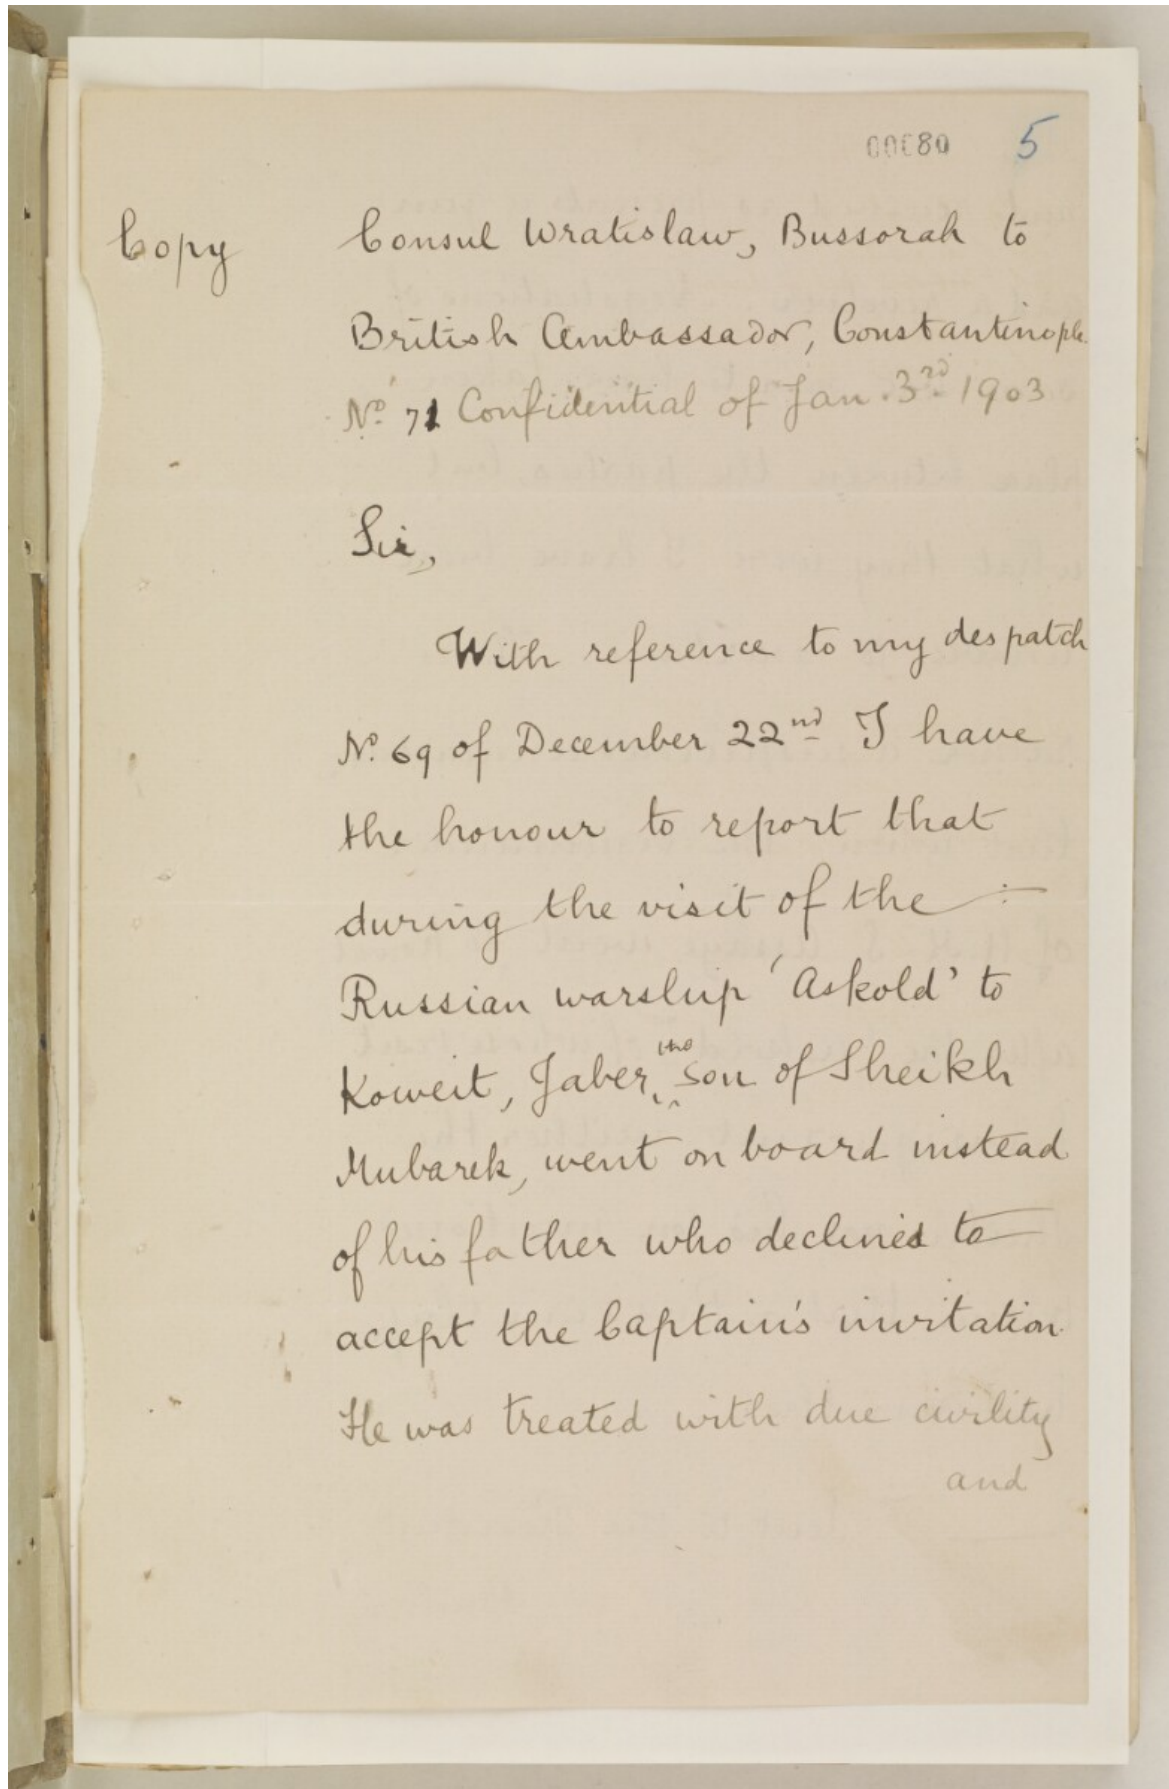 00080 5
Copy
Consul Wratislaw, Bussorah to
British Ambassador, Constantinople.
Nº 71 Confidential of Jan. 3rd 1903
Sir,
With reference to my despatch
Nº 69 of December 22nd I have
the honour to report that
during the visit of the
Russian warship 'Askold' to
Koweit, Jaber, the son of Sheikh
Mubarek, went on board instead
of his father who declined to
accept the Captain's invitation.
He was treated with due civility
and